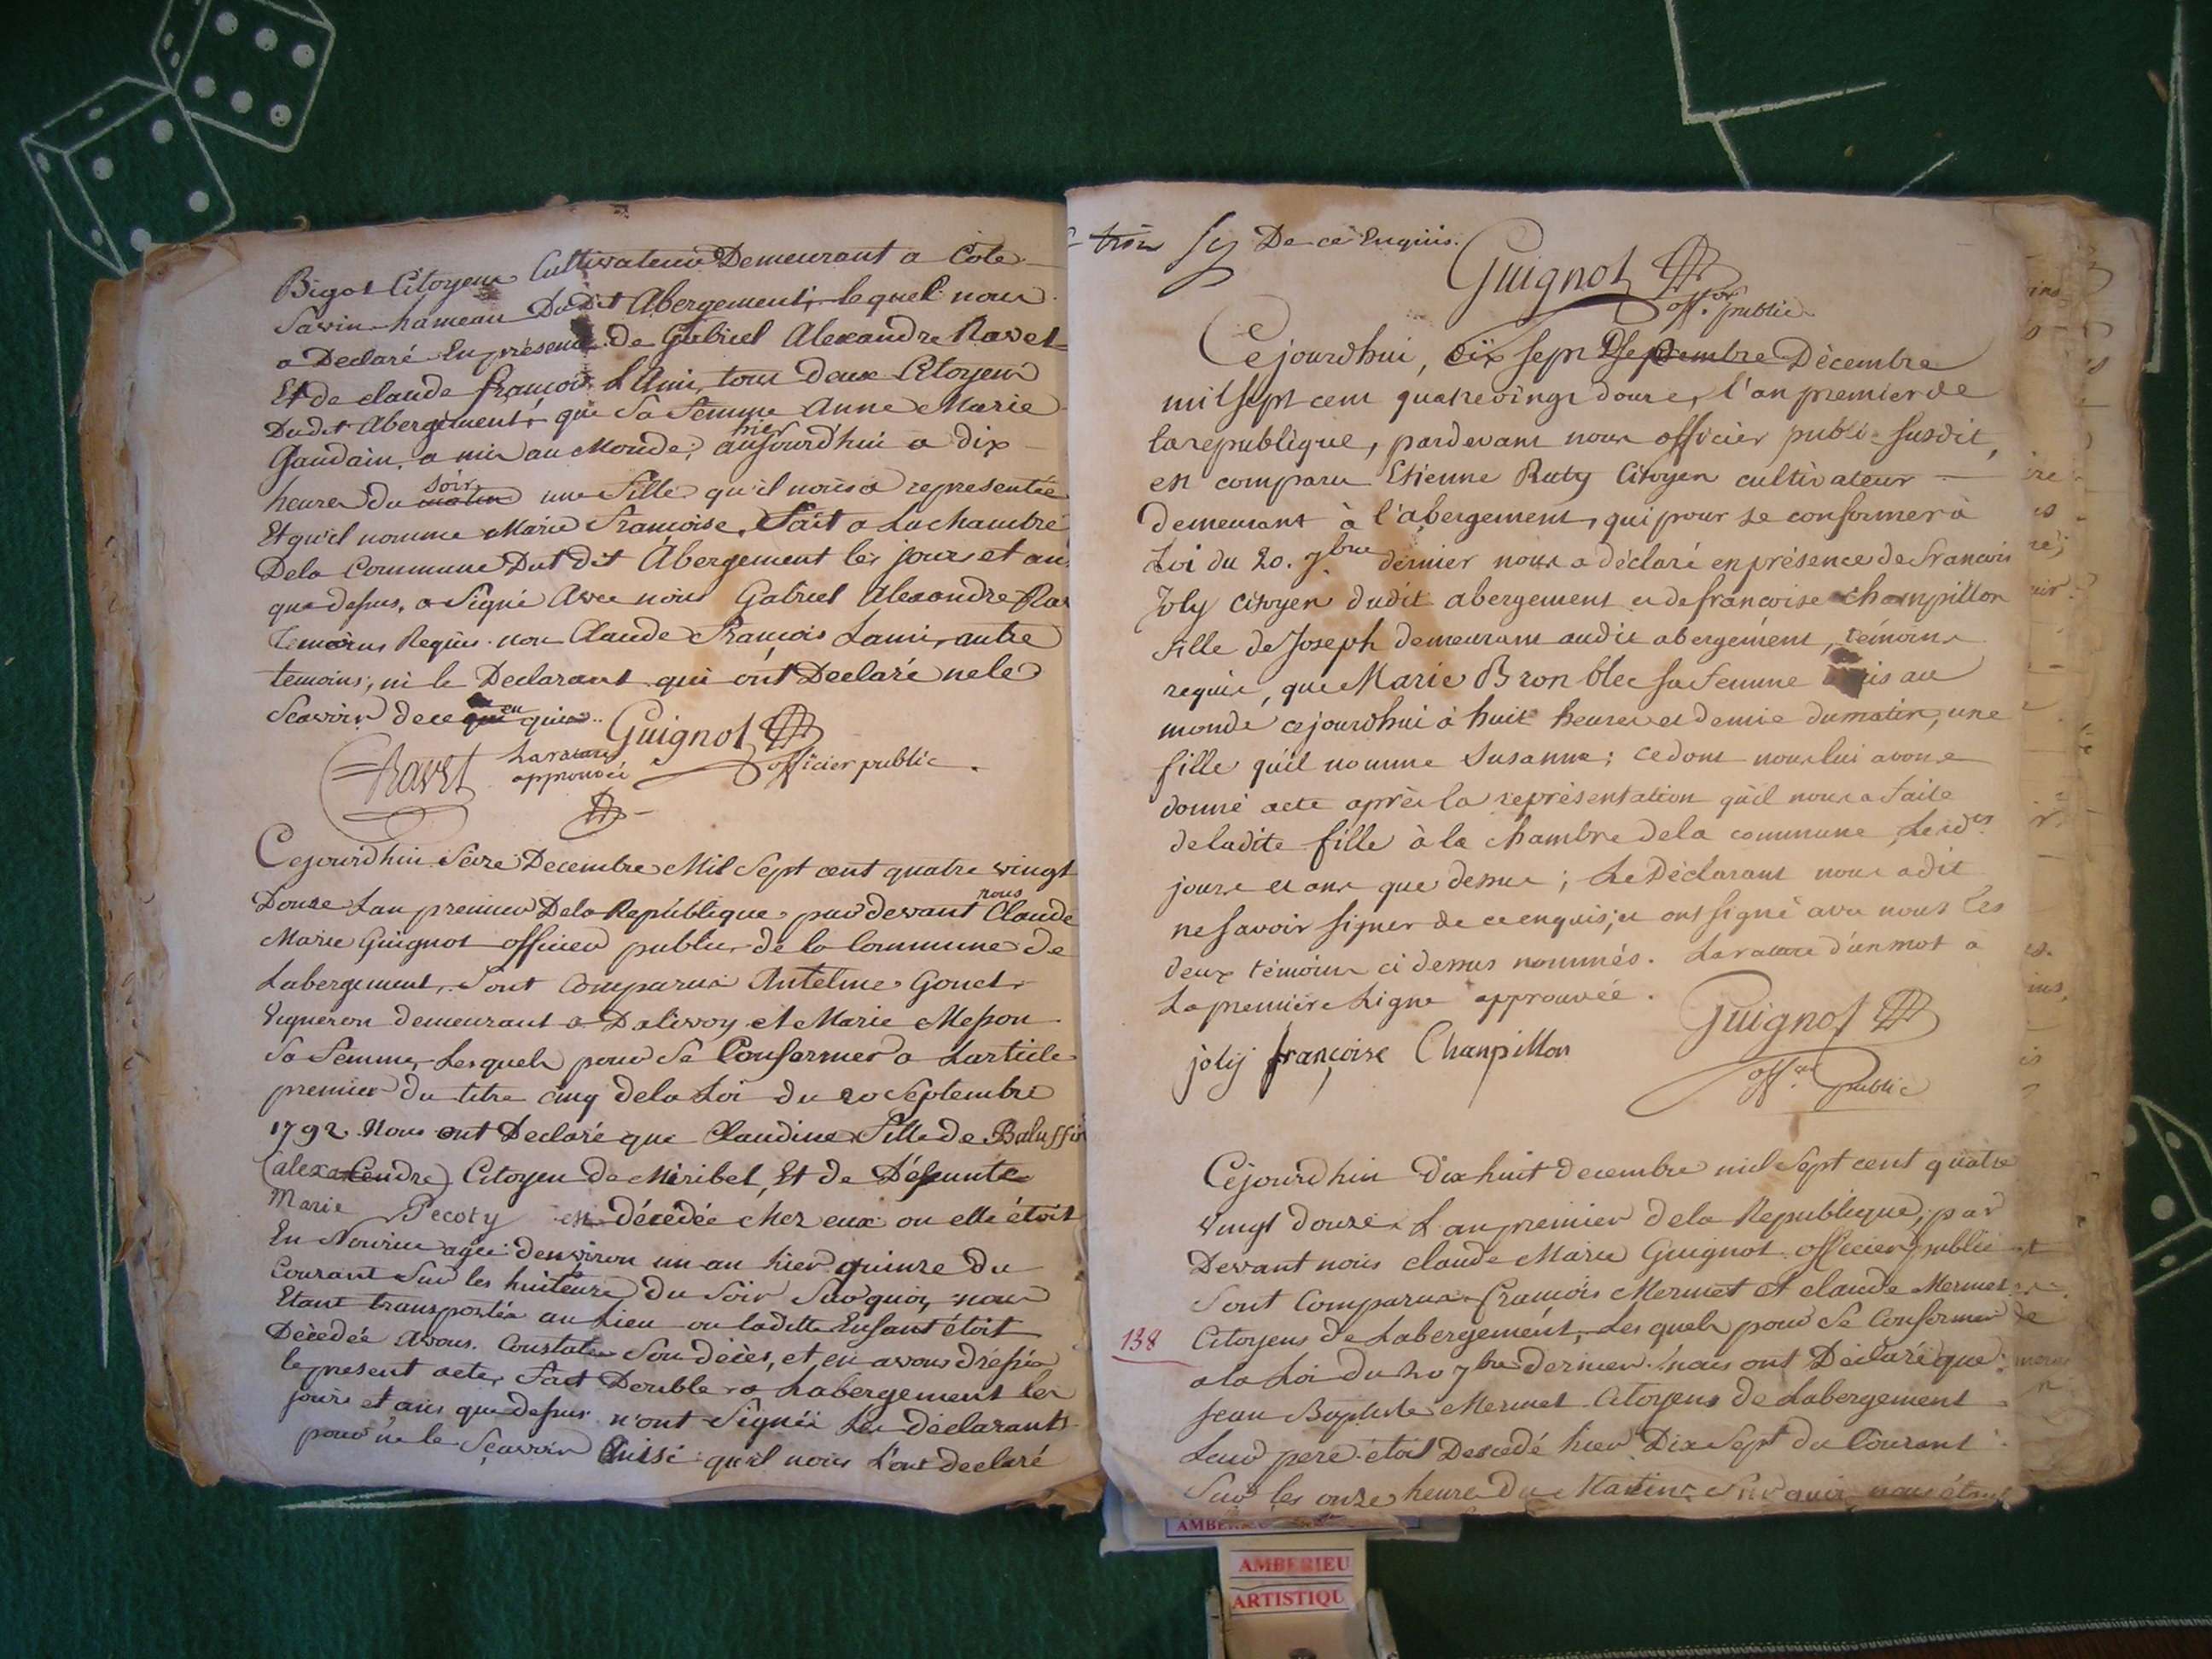 Bigot Citoyen Cultivateur Demeurant a Cote
Savin hameau Dudit Abergement; lequel nous
a Declaré En présence de Gabriel Alexandre Ravet
Et de claude françois L'Ami, tous deux Citoyens
Dudit Abergement que Sa Femme Anne Marie
hier
Gaudain, a mis au Monde, aujourd'hui a dix
soir
heures du matin une Fille qu'il nous a representée
Et qu'il nomme Marie Françoise. Fait a La chambre
Dela Commune Dut dit Abergement les jours et an
que dessus, a Signé Avec nous Gabriel Alexandre Rav
Temoins Requis non Claude François Lami, autre
temoins, ni le Declarant qui ont Declaré ne le
Scavoir de ce enquis
Guignot
Ravet
La rature
approuvée
officier public
Cejourdhui Seize Decembre Mil Sept cent quatre vingt
nous
Douze Lan premier Dela Republique par devant Claude
Marie Guignot officier public de la Commune de
Labergement, Sont Comparus Antelme Gonet
Vigneron demeurant a Dalivoy et Marie Messon
Sa Femme, Lesquels pour Se Conformer a Larticle
premier du titre cinq dela Loi du 20 Septembre
1792. Nous ont Declaré que Claudine Fille de Baluffin
(alexandre) Citoyen de Miribel, Et de Défunte
Marie Pecoty est décédée chez eux ou elle étoit
En Nourice agée denviron un an hier quinze du
Courant Sur les huit heures du Soir Sur quoi, nous
Etant transportés au Lieu ou ladite Enfant étoit
Décédée avons Constaté Son décès, et en avons dréssé
le present acte, Fait Double a Labergement les
jours et ans que dessus n'ont Signéi Les déclarants
pour ne le Sçavoir Ainsi qu'il nous L'ont declaré
De ce Enquis.
Guignot
offer public
Cejourdhui, dix sept Septembre Décembre
mil sept cent quatrevingt douze, l'an premier de
la republique, pardevant nous officier public susdit,
est comparu Etienne Ruty Citoyen cultivateur
demeurant à l'abergement, qui pour se conformer à
Loi du 20. 7bre dernier nous a déclaré en présence de francois
Joly citoyen dudit abergement et de francoise champillon
fille de Joseph demeurant audit abergement, témoins
requis, que Marie Bron blec sa femme a mis au
monde cejourdhui à huit heures et demie du matin, une
fille qu'il nomme Susanne; ce dont nous lui avons
donné acte après la représentation qu'il nous a faite
deladite fille à la chambre dela commune, Lesdts
jours et ans que dessus; Le Déclarant nous a dit
ne savoir signer de ce enquis; et ont signé avec nous les
deux témoins ci dessus nommés. La rature d'un mot a
La premiere Ligne approuvée.
Guignot
jolij françoise Chanpillon
offer public
Cejourdhui Dix huit decembre mil Sept cent quatre
vingt douze L an premier dela Republique, par
Devant nous claude Marie Guignot officier public
Sont Comparus François Mermet et claude Mermet
138
Citoyens de Labergement, Les quels pour Se Conformer
a la Loi du 20 7bre dernier nous ont Déclaré que
jean Baptiste Mermet Citoyens de Labergement
Leur pere étoit Decedé hier Dix Sept du Courant
Sur les onze heure du Matin, Sur quoi nous étant
AMBERIEU
AMBERIEU
ARTISTIQU